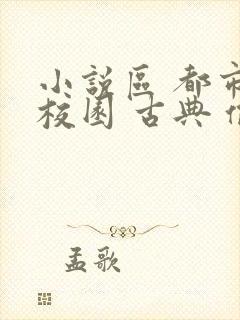 小說區 都市
校園 古典
孟歌